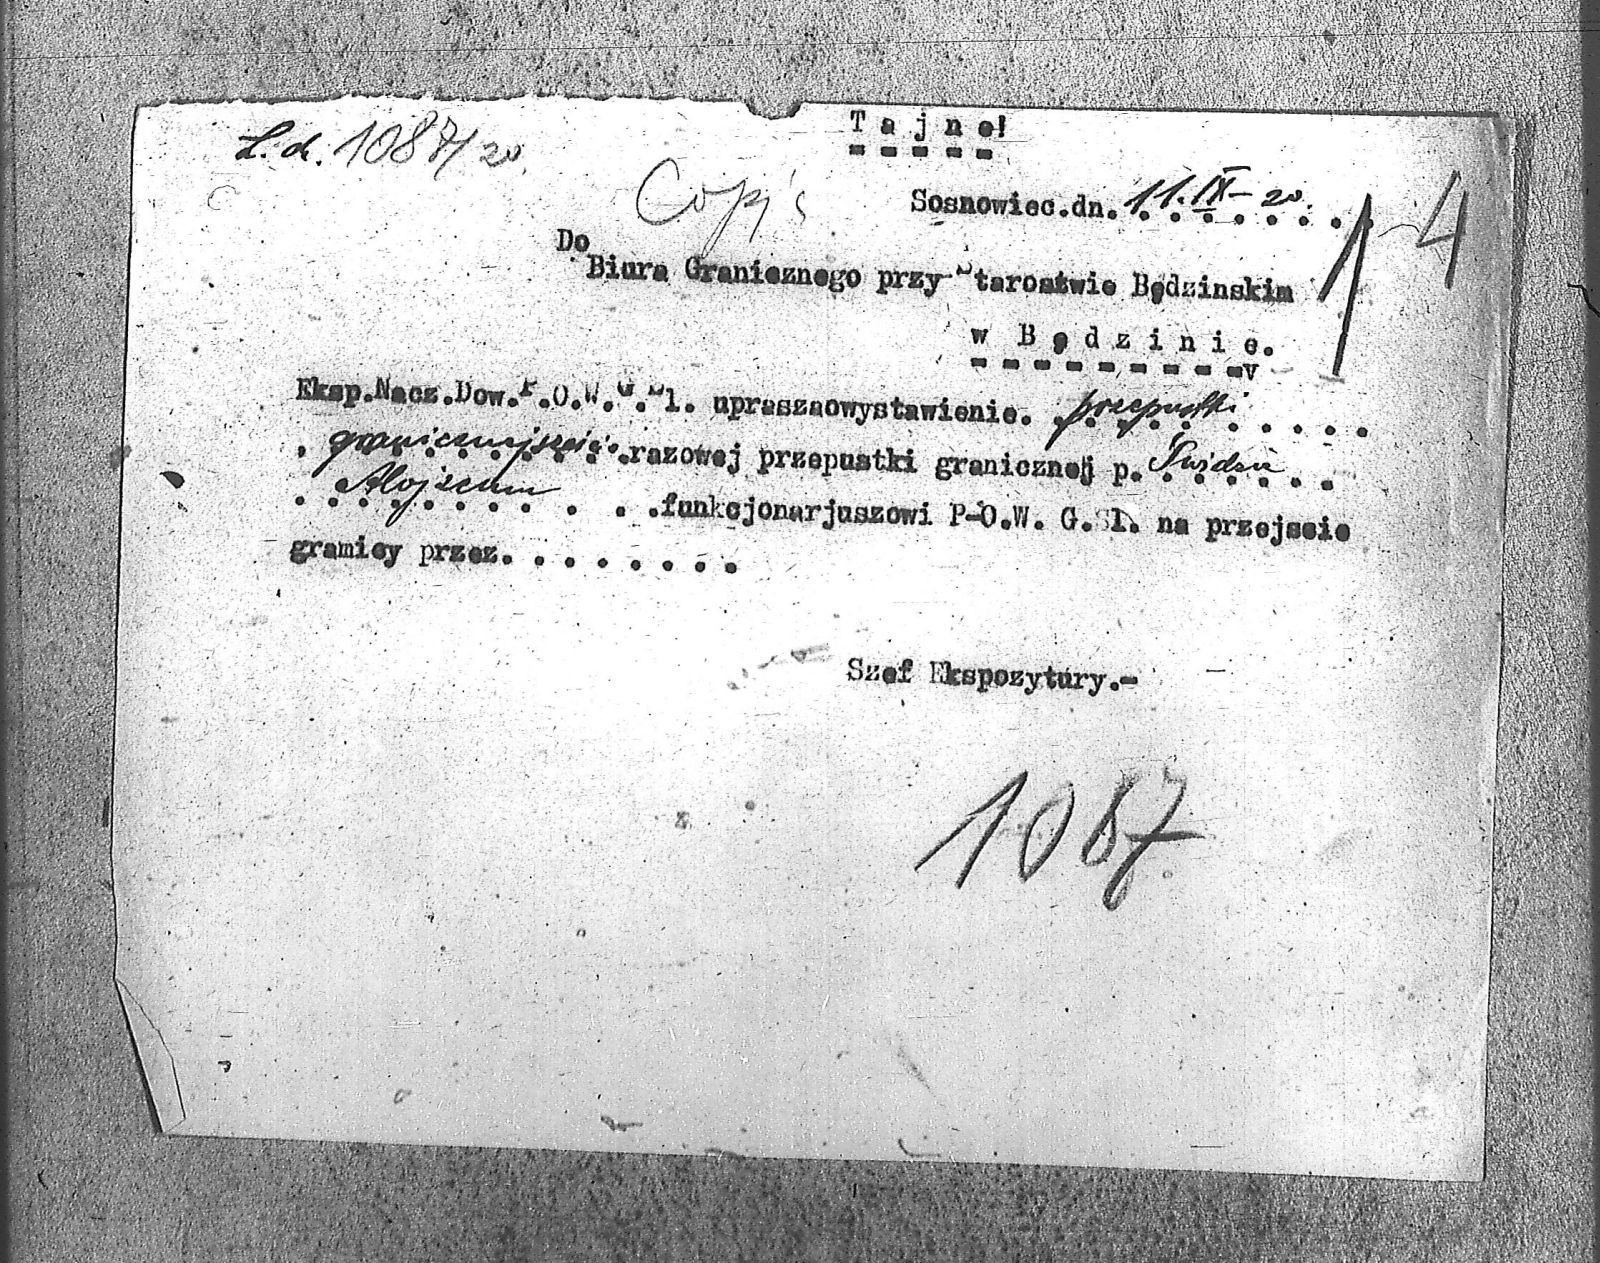 L.dz. 1087/20.
Tajne!
Copi
Sosnowiec.dn. 11.IX-20.
4
Do
Biura Granicznego przy Starostwie Będzinskim
w Będzinie.
Eksp.Nacz.Dow.P.O.W.G.Sl. upraszaowystawienie. przepustki
granicznej .razowej przepustki granicznej p.
Alojzemu . . .funkcjonarjuszowi P-O.W. G.Sl. na przejscie
gramicy przez. . . . . . . .
Szef Ekspozytury.-
1087